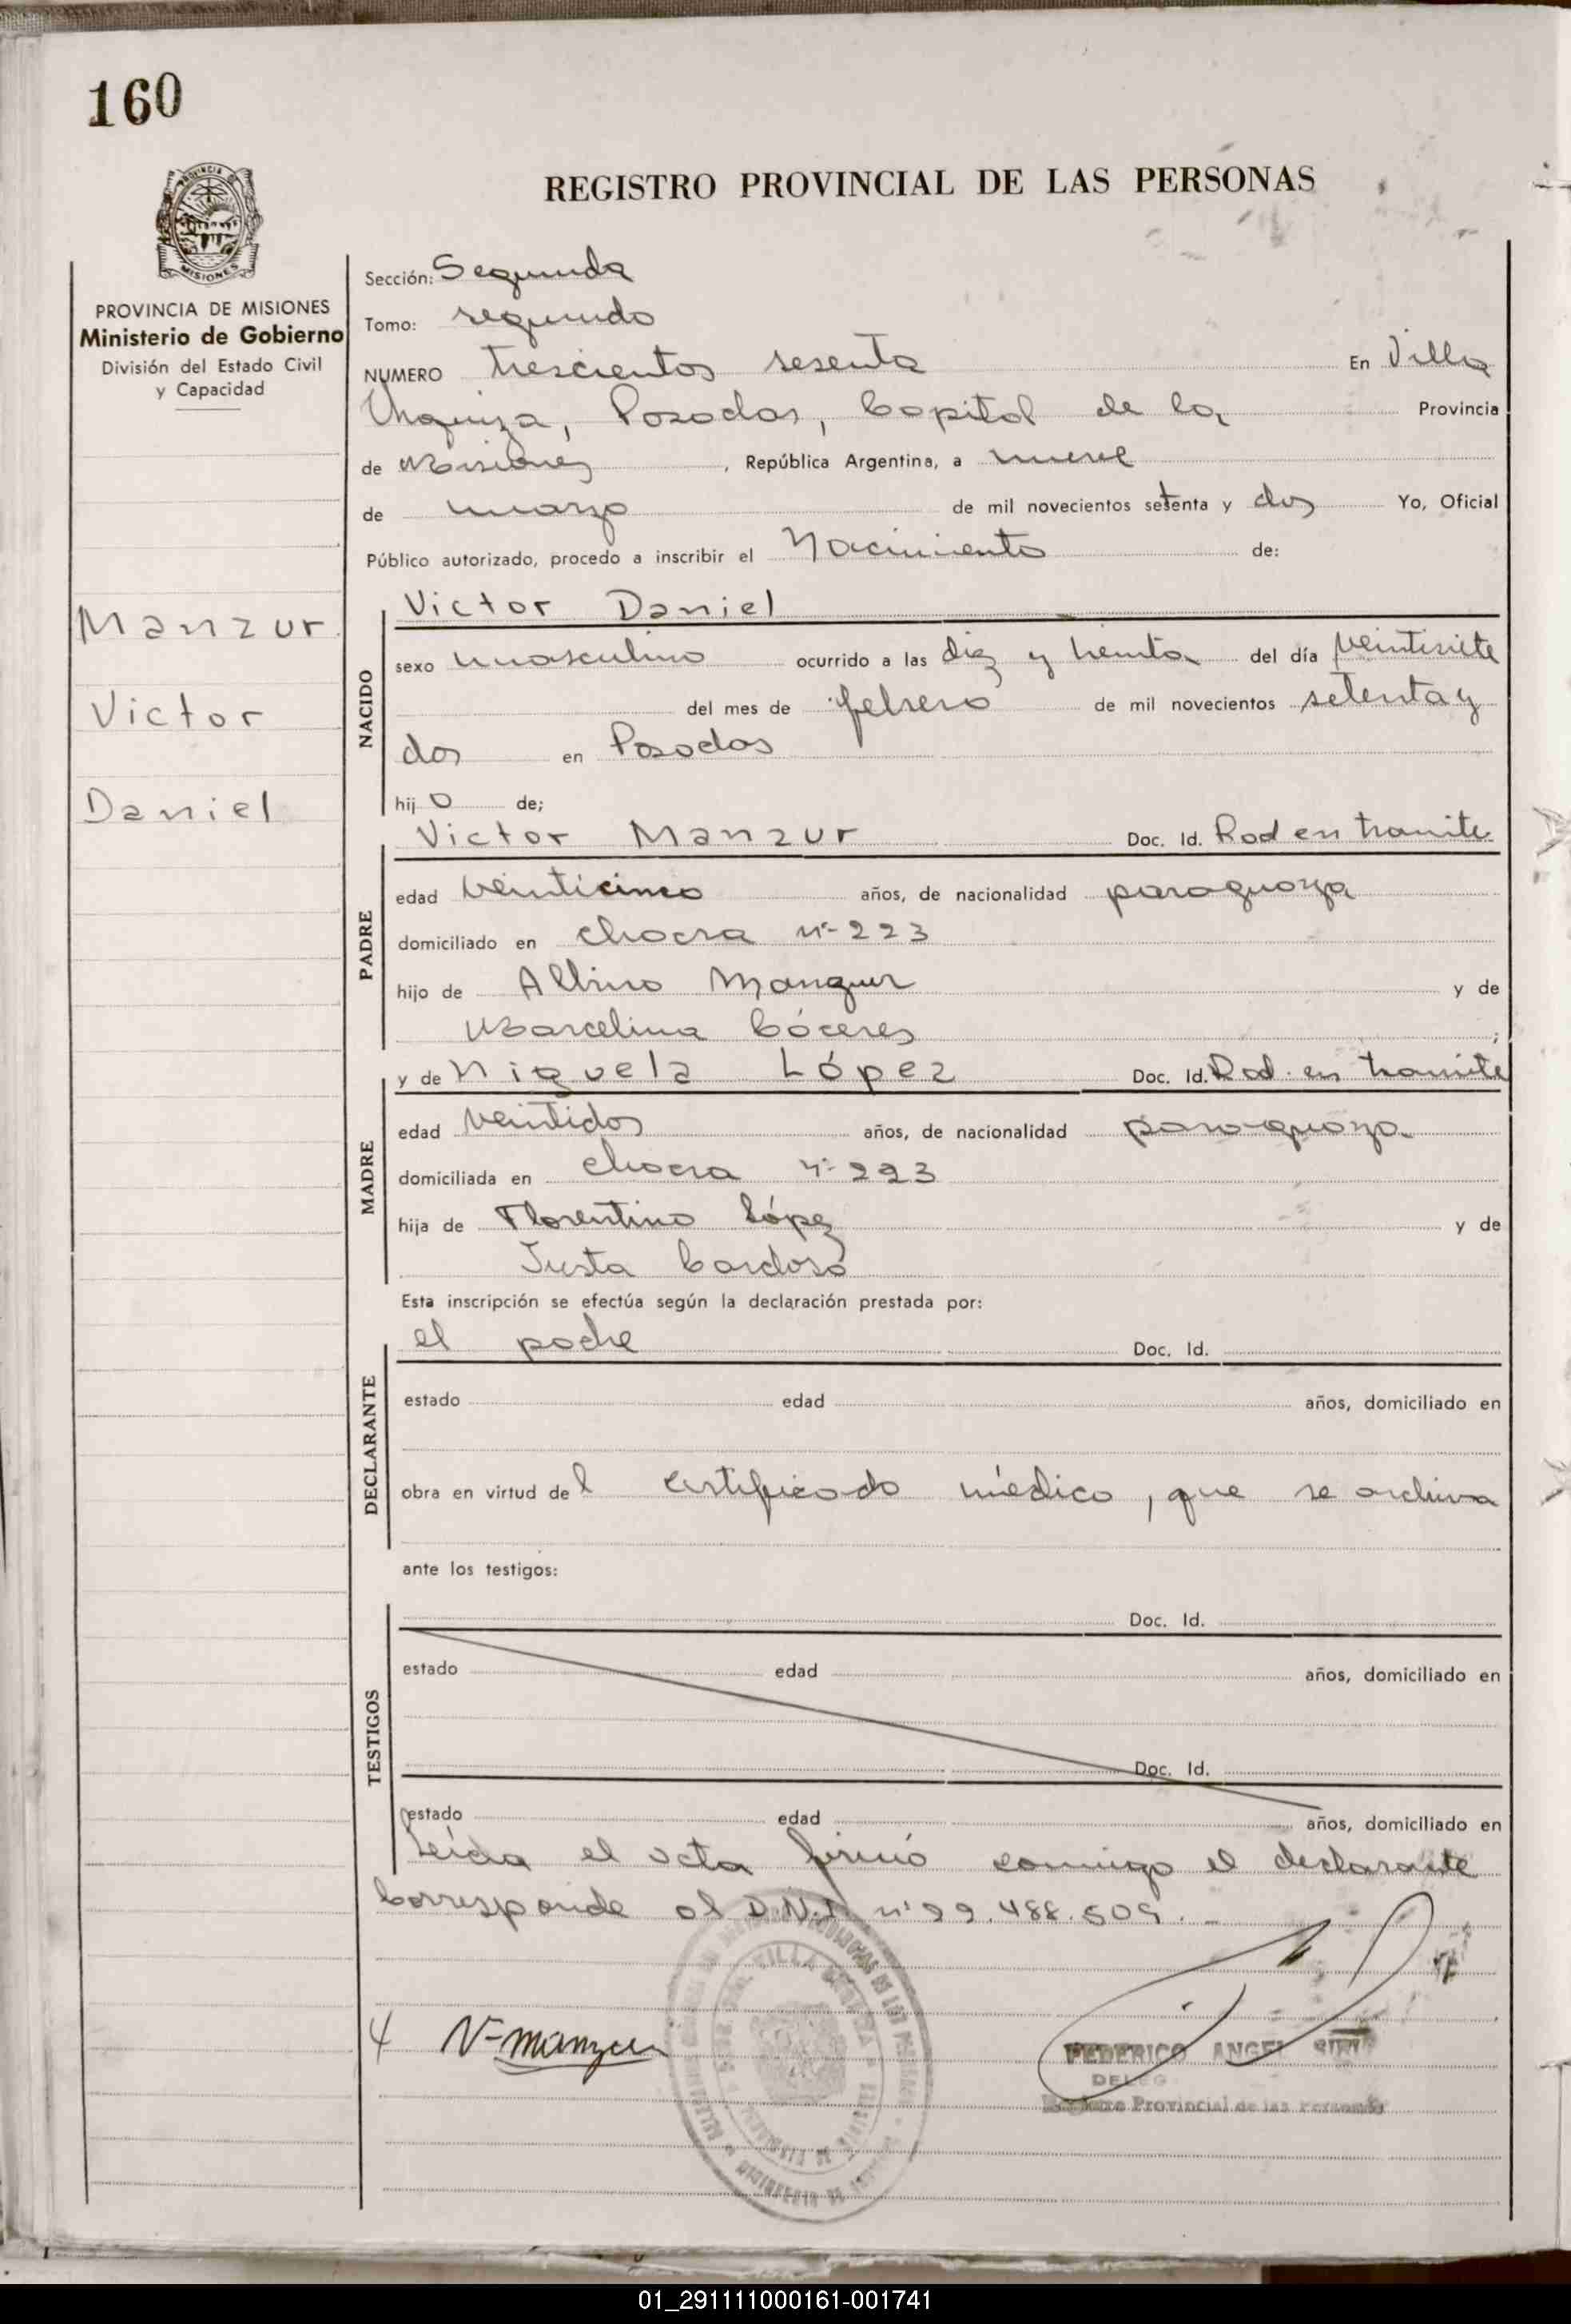 160
PROVINCIA DE
MISIONES
REGISTRO PROVINCIAL DE LAS PERSONAS
PROVINCIA DE MISIONES
Ministerio de Gobierno
División del Estado Civil
y Capacidad
Manzur
Victor
Daniel
Sección: Segunda
Tomo: segundo
NUMERO trescientos sesenta En Villa
Urquiza, Posadas, Capital de la Provincia
de Misiones, República Argentina, a nueve
de marzo de mil novecientos setenta y dos Yo, Oficial
Público autorizado, procedo a inscribir el Nacimiento de:
NACIDO
Victor Daniel
sexo masculino ocurrido a las diez y treinta del día veintisiete
del mes de febrero de mil novecientos setenta y
dos en Posadas
hijo de;
PADRE
Victor Manzur Doc. Id. Rad en tramite
edad veinticinco años, de nacionalidad paraguaya
domiciliado en chacra nº 223
hijo de Albino Manzur y de
Marcelina Cáceres;
MADRE
y de Niguela López Doc. Id. Rad. en tramite
edad veintidos años, de nacionalidad paraguaya
domiciliada en chacra nº 223
hija de Florentino López y de
Justa Cardoso
Esta inscripción se efectúa según la declaración prestada por:
DECLARANTE
el padre Doc. Id.
estado edad años, domiciliado en
obra en virtud del certificado médico, que se archiva
ante los testigos:
TESTIGOS
Doc. Id.
estado edad años, domiciliado en
Doc. Id.
estado edad años, domiciliado en
Leida el acta firmó conmigo el declarante
Corresponde al D.N.I. nº 22.488.509.-
V-manzur
FEDERICO ANGEL
DELEG
Registro Provincial de las Personas
01_291111000161-001741